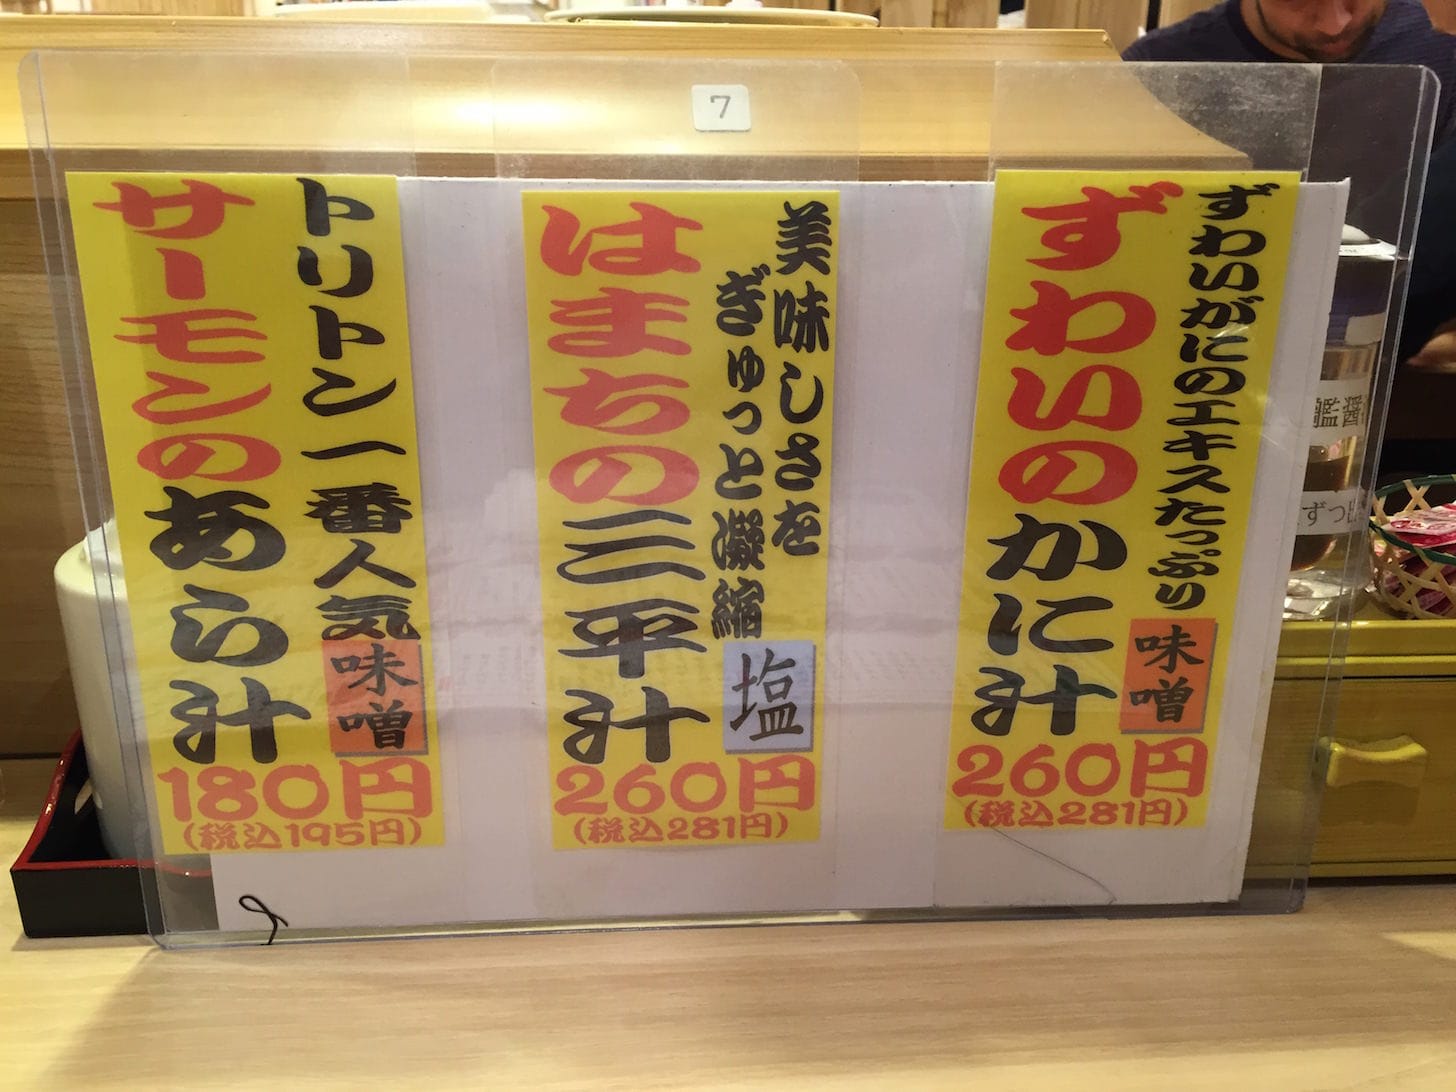 7
ずわいがにのエキスたっぷり
ずわいのかに汁
味噌
260円
(税込281円)
美味しさを
ぎゅっと凝縮
はまちの三平汁
塩
260円
(税込281円)
トリトン一番人気
サーモンのあら汁
味噌
180円
(税込195円)